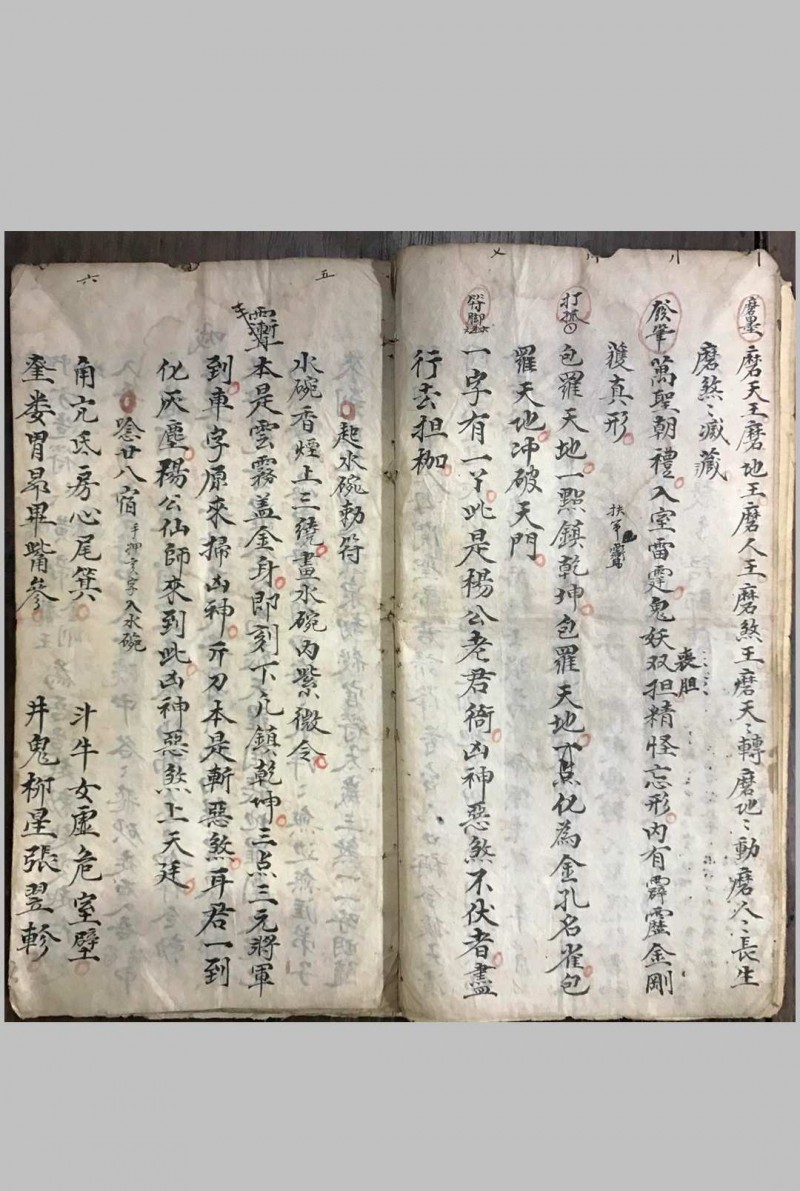 磨墨 磨天王磨地王磨人王磨煞王磨天〻轉磨地〻動磨人〻長生
磨煞〻滅藏
萬聖朝禮入室雷霆鬼妖双担精怪忘形內有霹靂金剛
喪胆
護真形
包羅天地一點鎮乾坤包羅天地下点化為金孔名雀包
羅天地冲破天門
符脚
一字有一丫此是楊公老君衙凶神惡煞不伏者盡
行去担枷
五
起水碗勅符
水碗香煙上三繞畫水碗內紫微令
本是雲霧盖金身即刻下凡鎮乾坤三点三元將軍
到車字原來掃凶神斤刀本是斬惡煞耳君一到
化灰塵楊公仙師來到此凶神惡煞上天廷
唸廿八宿 入水碗
六
角亢氐房心尾箕 斗牛女虛危室壁
奎娄胃昴畢觜參 井鬼柳星張翌軫